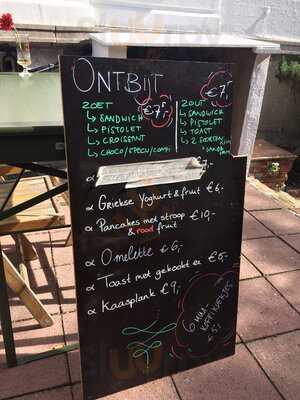 ONTBIJT
ZOET €7,-
↳ SANDWICH
↳ PISTOLET
↳ CROISSANT
↳ CHOCO/SPECU/CONFI
ZOUT €7,-
↳ SANDWICH
↳ PISTOLET
↳ TOAST
↳ 2 SOORTEN
α Griekse Yoghurt & fruit €6,-
α Pancakes met stroop €10,-
& rood fruit
α Omelette €6,-
α Toast met gekookt ei €5,-
α Kaasplank €9,-
6 MINI-
KOFFIEKOEKJES
€5,-